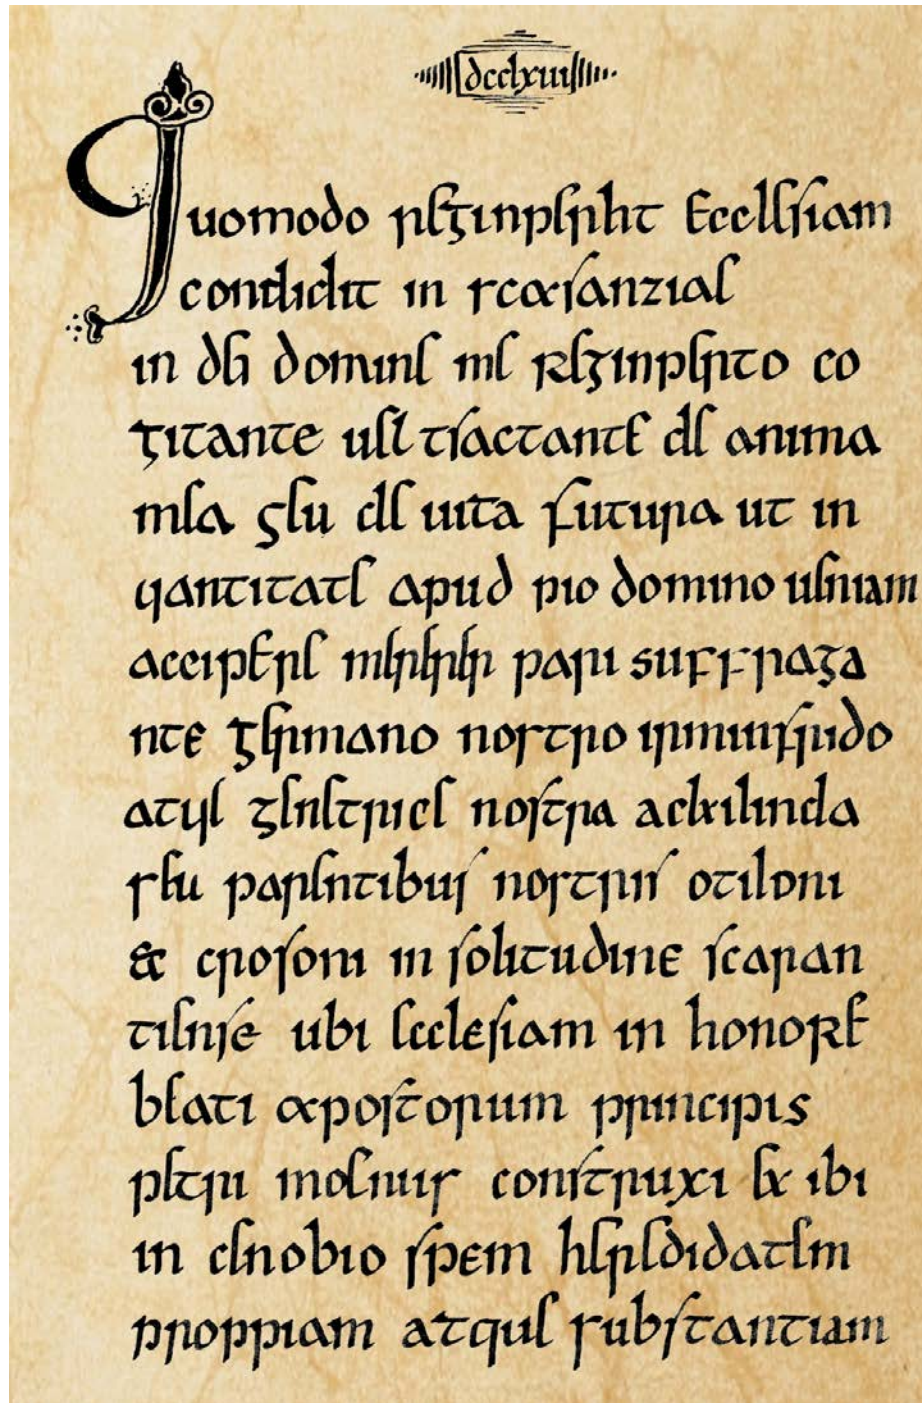 dcclxiii
Quomodo reginperht Ecclesiam
condidit in scaranziae
in dei domine me Reginperto co
gitante uel tractante de anima
mea seu de uita futura ut in
qantitate apud pio domino ueniam
accipere mererer pari suffraga
nte germano nostro irminfrido
atqe genetrice nostra
seu parentibus nostris otiloni
& crosoni in solitudine scaran
tiense ubi ecclesiam in honore
beati apostorum principis
petri construxi & ibi
in cenobio spem heredidatem
proppiam atque substantiam